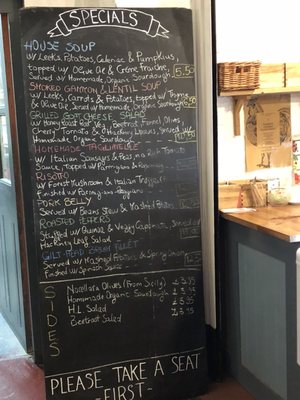 SPECIALS
HOUSE SOUP
w/ Leeks, Potatoes, Celeriac & Pumpkins,
topped w/ Olive Oil & Crème fraiche
Served w/ Homemade Organic Sourdough 5.50
SMOKED GAMMON & LENTIL SOUP
w/ Leeks, Carrots & Potatoes, topped w/ Thyme
& Olive Oil, Served w/ Homemade Organic Sourdough
GRILLED GOAT CHEESE SALAD
w/ Honey Roast Beetroot, Fennel, Olives,
Cherry Tomato & Hackney Leaves, Served w/
Homemade Organic Sourdough
HOMEMADE TAGLIATELLE
w/ Italian Sausages & Peas, in a Rich Tomato
Sauce, topped w/ Parmigiano
RISOTTO
w/ Forest Mushroom & Italian Truffle,
Finished w/ Parmigiano
PORK BELLY
Served w/ Beans Stew & Roasted Potatoes
ROASTED PEPPERS
Stuffed w/ Quinoa & Veggy Caponata, Served w/
Hackney Leaf Salad
GILT-HEAD BREAM FILLET
Served w/ Mashed Potatoes & Spring Onion
Finished w/ Spinach Sauce
SIDES
Nocellara Olives (From Sicily)
Homemade Organic Sourdough
H.L. Salad £3.95
Beetroot Salad £3.95
PLEASE TAKE A SEAT
-FIRST-